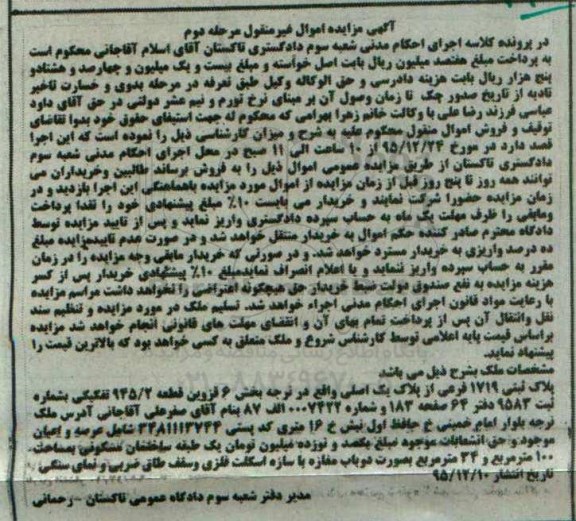 آگهی مزایده اموال غیرمنقول مرحله دوم
در پرونده کلاسه اجرای احکام مدنی شعبه سوم دادگستری تاکستان آقای اسلام آقاجانی محکوم است
به پرداخت مبلغ هفتصد میلیون ریال بابت اصل خواسته و مبلغ بیست و یک میلیون و چهارصد و هشتادو
پنج هزار ریال بابت هزینه دادرسی و حق الوکاله وکیل طبق تعرفه در مرحله بدوی و خسارت تاخیر
تادیه از تاریخ صدور چک تا زمان وصول آن بر مبنای نرخ تورم و نیم عشر دولتی در حق آقای داود
عباسی فرزند رضا علی با وکالت خانم زهرا بهرامی که محکوم له جهت استیفای حقوق خود بدوا تقاضای
توقیف و فروش اموال منقول محکوم علیه به شرح و میزان کارشناسی ذیل را نموده است که این اجرا
قصد دارد در مورخ ۹۵/۱۲/۲۴ از ۱۰ ساعت الی ۱۱ صبح در محل اجرای احکام مدنی شعبه سوم
دادگستری تاکستان از طریق مزایده عمومی اموال ذیل را به فروش برساند طالبین وخریداران می
توانند همه روز تا پنج روز قبل از زمان مزایده از اموال مورد مزایده باهماهنگی این اجرا بازدید و در
زمان مزایده حضورا شرکت نمایند و خریدار می بایست ۱۰٪ مبلغ پیشنهادی خود را نقدا پرداخت
ومابقی را ظرف مهلت یک ماه به حساب سپرده دادگستری واریز نماید و پس از تایید مزایده توسط
دادگاه محترم صادر کننده حکم اموال به خریدار منتقل خواهد شد و در صورت عدم تاییدمزایده مبلغ
ده درصد واریزی به خریدار مسترد خواهد شد. و در صورتی که خریدار مابقی وجه مزایده را در زمان
مقرر به حساب سپرده واریز ننماید و یا اعلام انصراف نمایدمبلغ ۱۰٪ پیشنهادی خریدار پس از کسر
هزینه مزایده به نفع صندوق دولت ضبط خریدار حق هیچگونه اعتراضی را نخواهد داشت مراسم مزایده
با رعایت مواد قانون اجرای احکام مدنی اجراء خواهد شد. تسلیم ملک در مورد مزایده و تنظیم سند
نقل وانتقال آن پس از پرداخت تمام بهای آن و انقضای مهلت های قانونی انجام خواهد شد مزایده
براساس قیمت پایه اعلامی توسط کارشناس شروع و ملک متعلق به کسی خواهد بود که بالاترین قیمت را
پیشنهاد نماید.
مشخصات ملک بشرح ذیل می باشد
پلاک ثبتی ۱۷۱۹ فرعی از پلاک یک اصلی واقع در نرجه بخش ۶ قزوین قطعه ۹۴۵/۲ تفکیکی بشماره
ثبت ۹۵۸۳ دفتر ۶۴ صفحه ۱۸۳ و شماره ۰۰۰۷۴۲۲ الف ۸۷ بنام آقای صفرعلی آقاجانی آدرس ملک
نرجه بلوار امام خمینی خ حافظ اول نبش خ ۱۶ متری کد پستی ۳۴۸۱۱۱۳۷۴۴ شامل عرصه و اعیان
موجود و حق انشعابات موجود مبلغ یکصد و نوزده میلیون تومان یک طبقه ساختمان مسکونی بمساحت
۱۰۰ مترمربع و ۳۴ مترمربع بصورت دوباب مغازه با سازه اسکلت فلزی وسقف طاق ضربی و نمای سنگی
تاریخ انتشار ۹۵/۱۲/۱۰
مدیر دفتر شعبه سوم دادگاه عمومی تاکستان - رحمانی